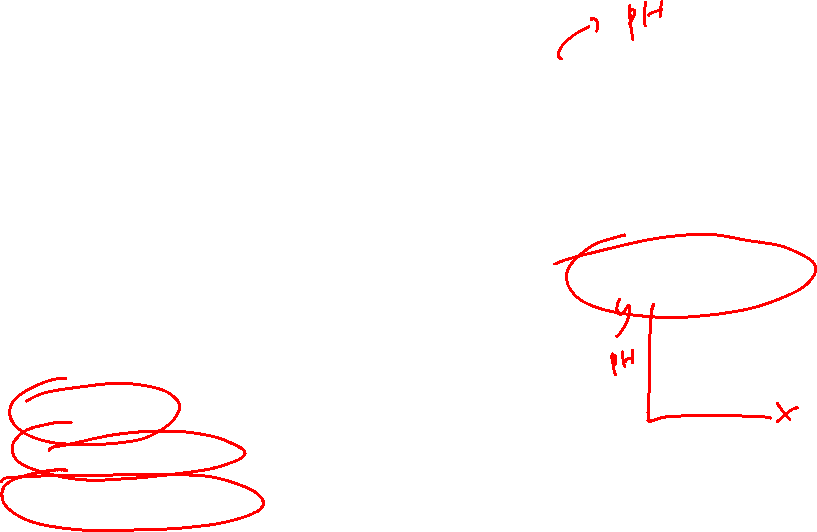 pH
y
pH
x